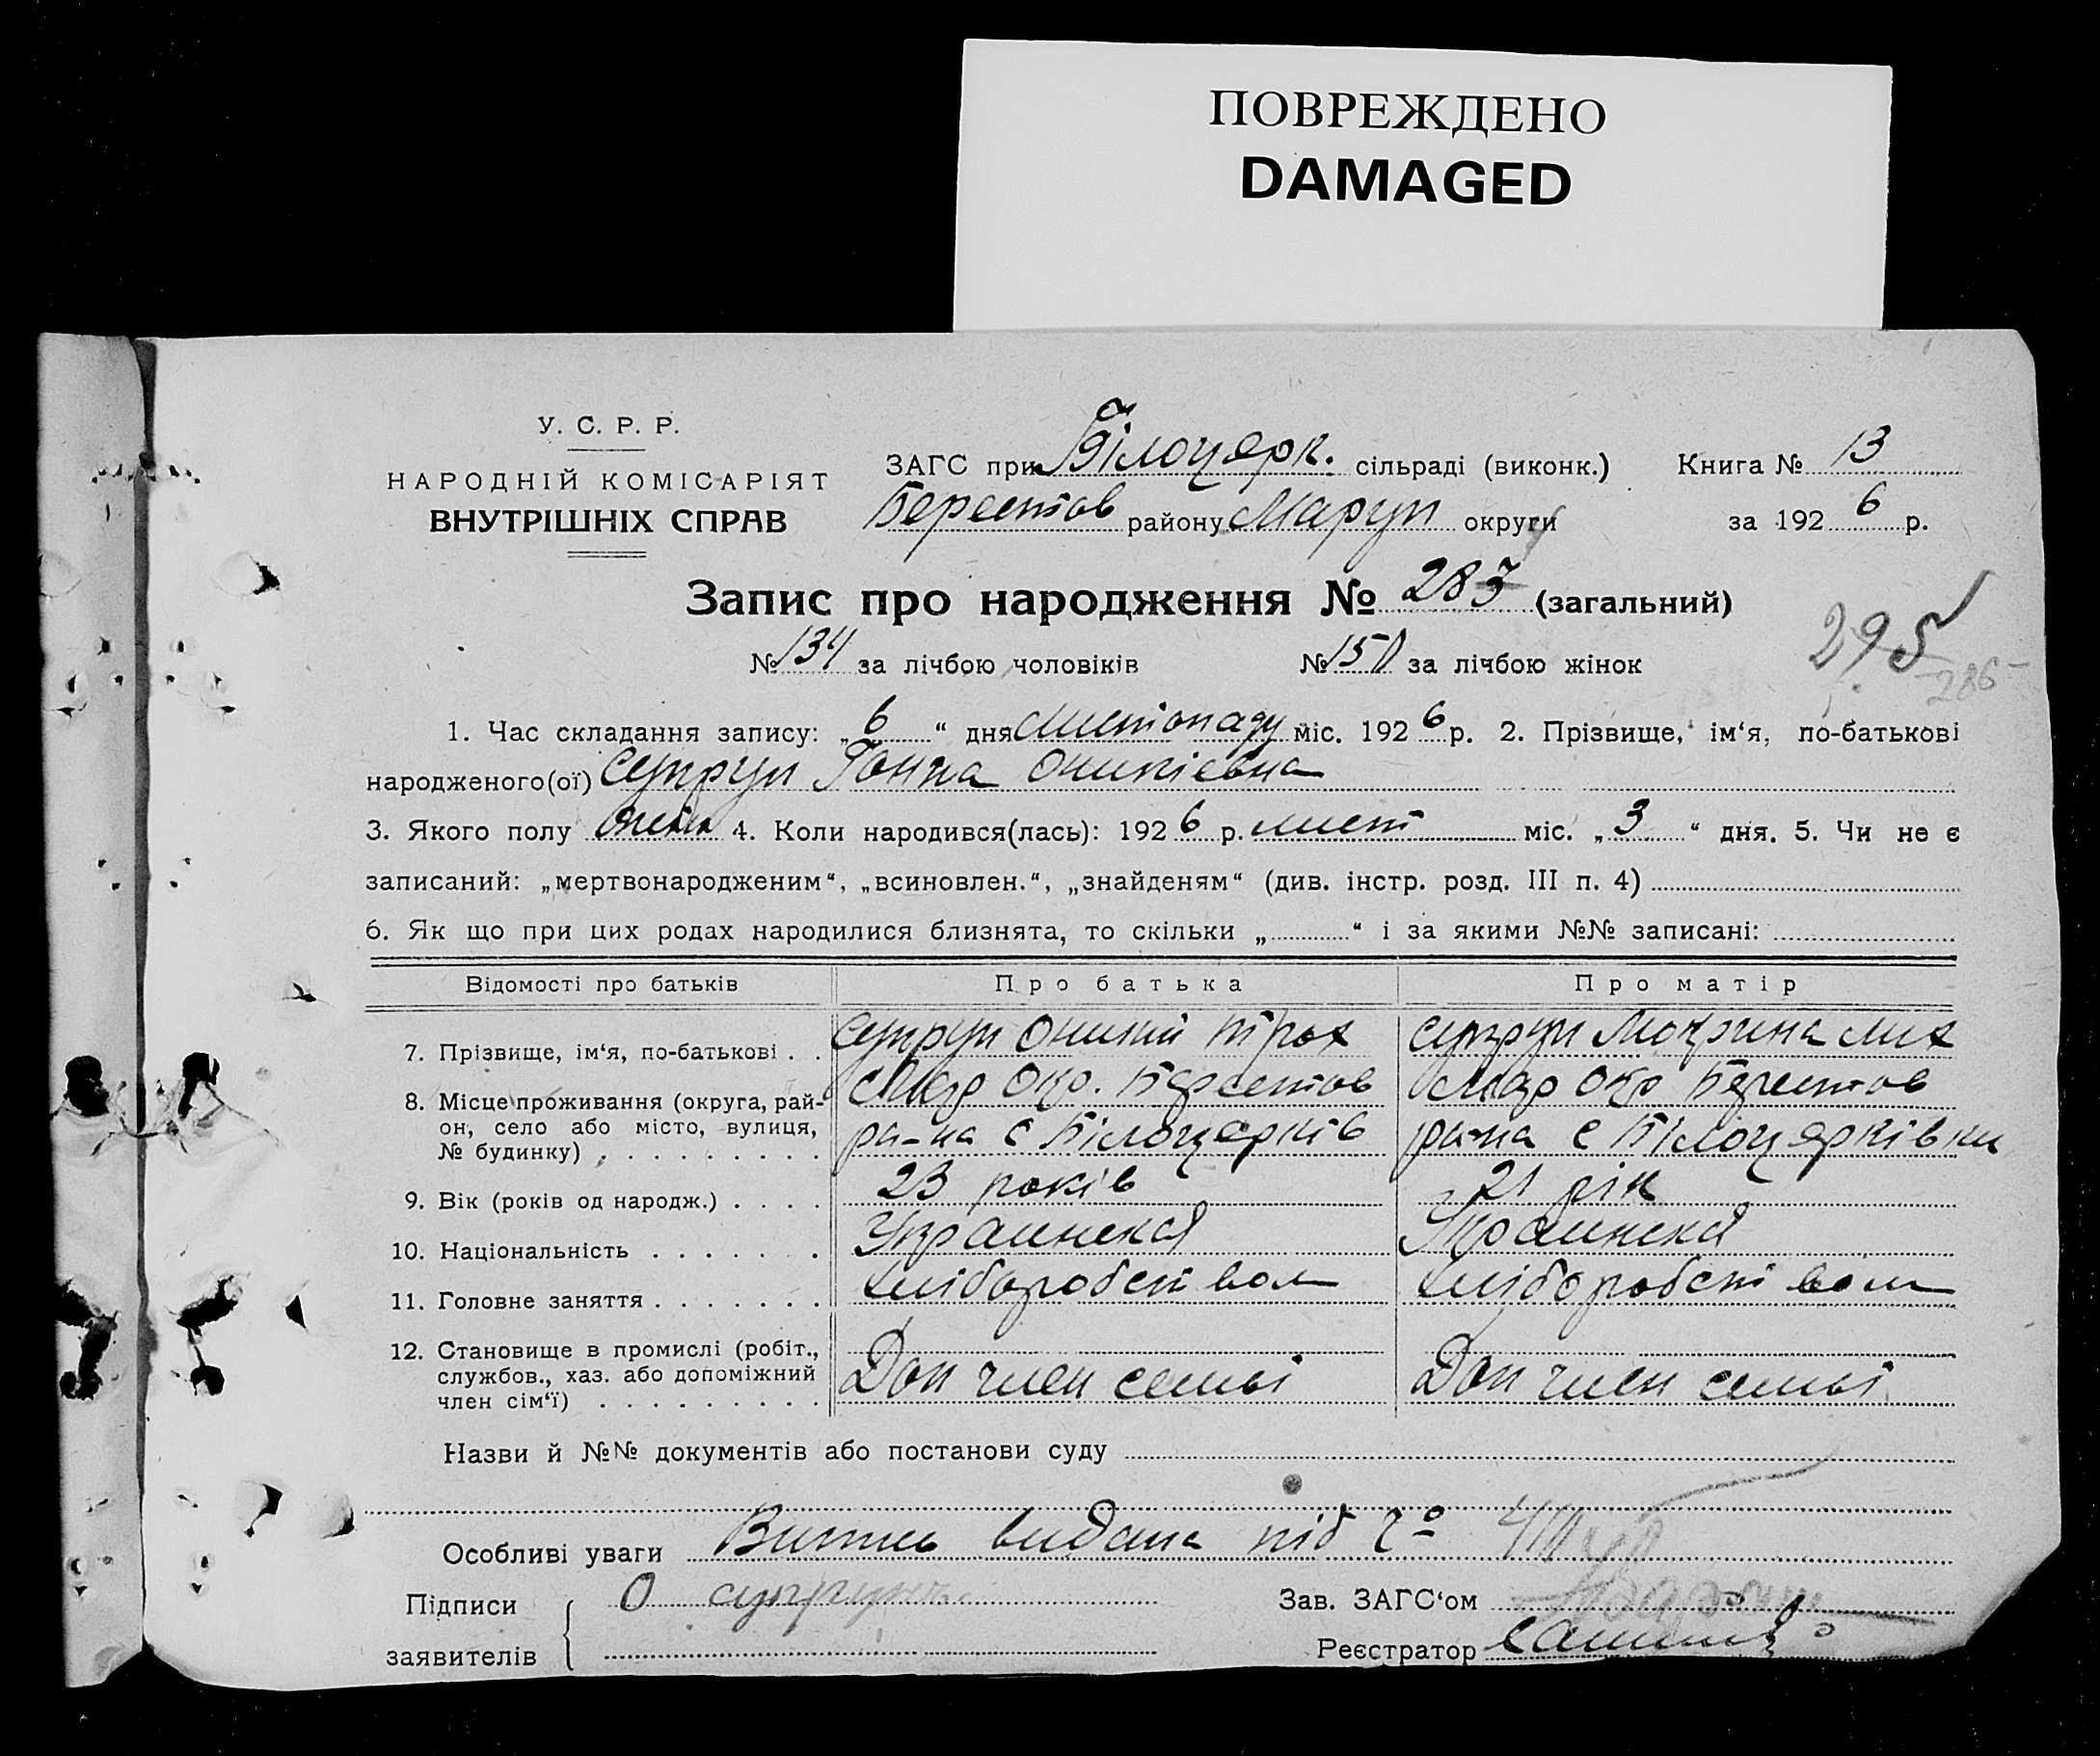 ПОВРЕЖДЕНО
DAMAGED
У. С. Р. Р.
НАРОДНІЙ КОМІСАРІЯТ
ВНУТРІШНІХ СПРАВ
ЗАГС при Білоцерк. сільраді (виконк.) Книга № 13
Берестов району Маруп округи за 1926 р.
Запис про народження № 283 (загальний)
295
286
№ 134 за лічбою чоловіків № 151 за лічбою жінок
1. Час складання запису: „6“ дня листопаду міс. 1926 р. 2. Прізвище, ім‘я, по-батькові
народженого(ої) Супрун Ганна Оникієвна
3. Якого полу 4. Коли народився(лась): 1926 р. лист міс. „3“ дня. 5. Чи не є
записаний: „мертвонародженим“, „всиновлен.“, „знайденям“ (див. інстр. розд. III п. 4)
6. Як що при цих родах народилися близнята, то скільки „ “ і за якими №№ записані:
Відомості про батьків Про батька Про матір
7. Прізвище, ім‘я, по-батькові . . Супрун Оникий Трох Супрун Мокрина Мих
8. Місце проживання (округа, рай- Мар Окр. Берестов Мар Окр Берестов
он, село або місто, вулиця, ра-на с Білоцерків ра-на с Білоцерківки
№ будинку) . . . . . . . . .
9. Вік (років од народж.) . . . . 23 років 21 рік
10. Національність . . . . . . . Украинская Украинская
11. Головне заняття . . . . . . . хліборобством хліборобством
12. Становище в промислі (робіт.,
службов., хаз. або допоміжний Доп член семьі Доп член семьі
член сім‘ї) . . . . . . . . .
Назви й №№ документів або постанови суду
Особливі уваги Випись видана під
Підписи О Супрун Зав. ЗАГС‘ом
заявителів Реєстратор